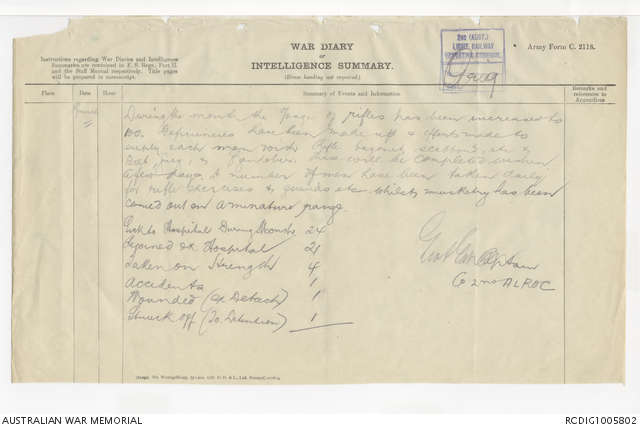 Instructions regarding War Diaries and Intelligence
Summaries are contained in F. S. Regs., Part II.
and the Staff Manual respectively. Title pages
will be prepared in manuscript.
WAR DIARY
or
INTELLIGENCE SUMMARY.
(Erase heading not required.)
2ND (AUST.)
LIGHT RAILWAY
OPERATING COMPANY
Army Form C. 2118.
Place
Date
Hour
Summary of Events and Information
Remarks and
references to
Appendices
During the month the of rifles has been increased to
100. have been made up & efforts made to
supply each man with Rifle bayonet scabbard, &
& this will be completed within
a few days. A number of men have been taken daily
for rifle exercises & guards etc whilst musketry has been
carried out on a miniature range.
Sick to Hospital During Month 24
Rejoined ex Hospital 21
Taken on Strength 4
Accidents 1
Wounded (ex Detach) 1
Struck off (To Detention) 1
Captain
2nd ALROC
AUSTRALIAN WAR MEMORIAL
RCDIG1005802